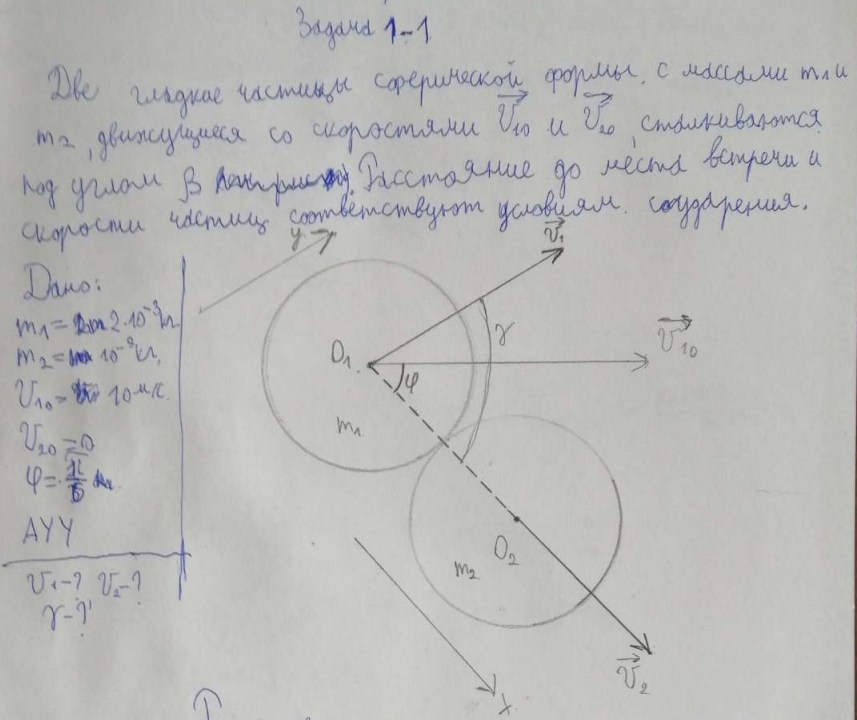 Задача 1-1
Две гладкие частицы сферической формы, с массами m₁ и
m₂, движущиеся со скоростями V₁₀ и V₂₀, сталкиваются
под углом β Расстояние до места встречи и
скорости частиц соответствуют условиям соударения.
Дано:
m₁= 2·10⁻³кг
m₂= 10⁻³кг,
V₁₀= 10 м/с.
V₂₀=0
φ=π/6
АУУ
V₁-? V₂-?
γ-?
y
V₁
γ
V₁₀
O₁
φ
m₁
O₂
m₂
V₂
x